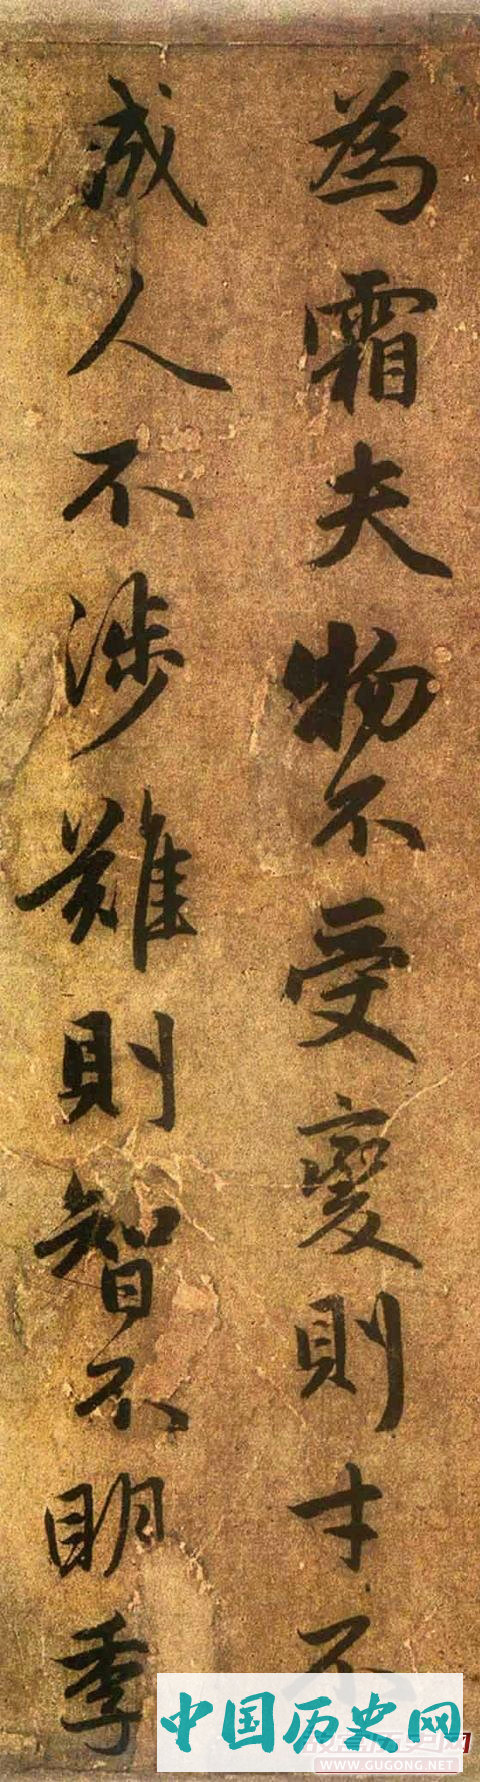 為霜夫物不受變則才不
成人不涉難則智不明季
中国历史网
WWW.GUGONG.NET